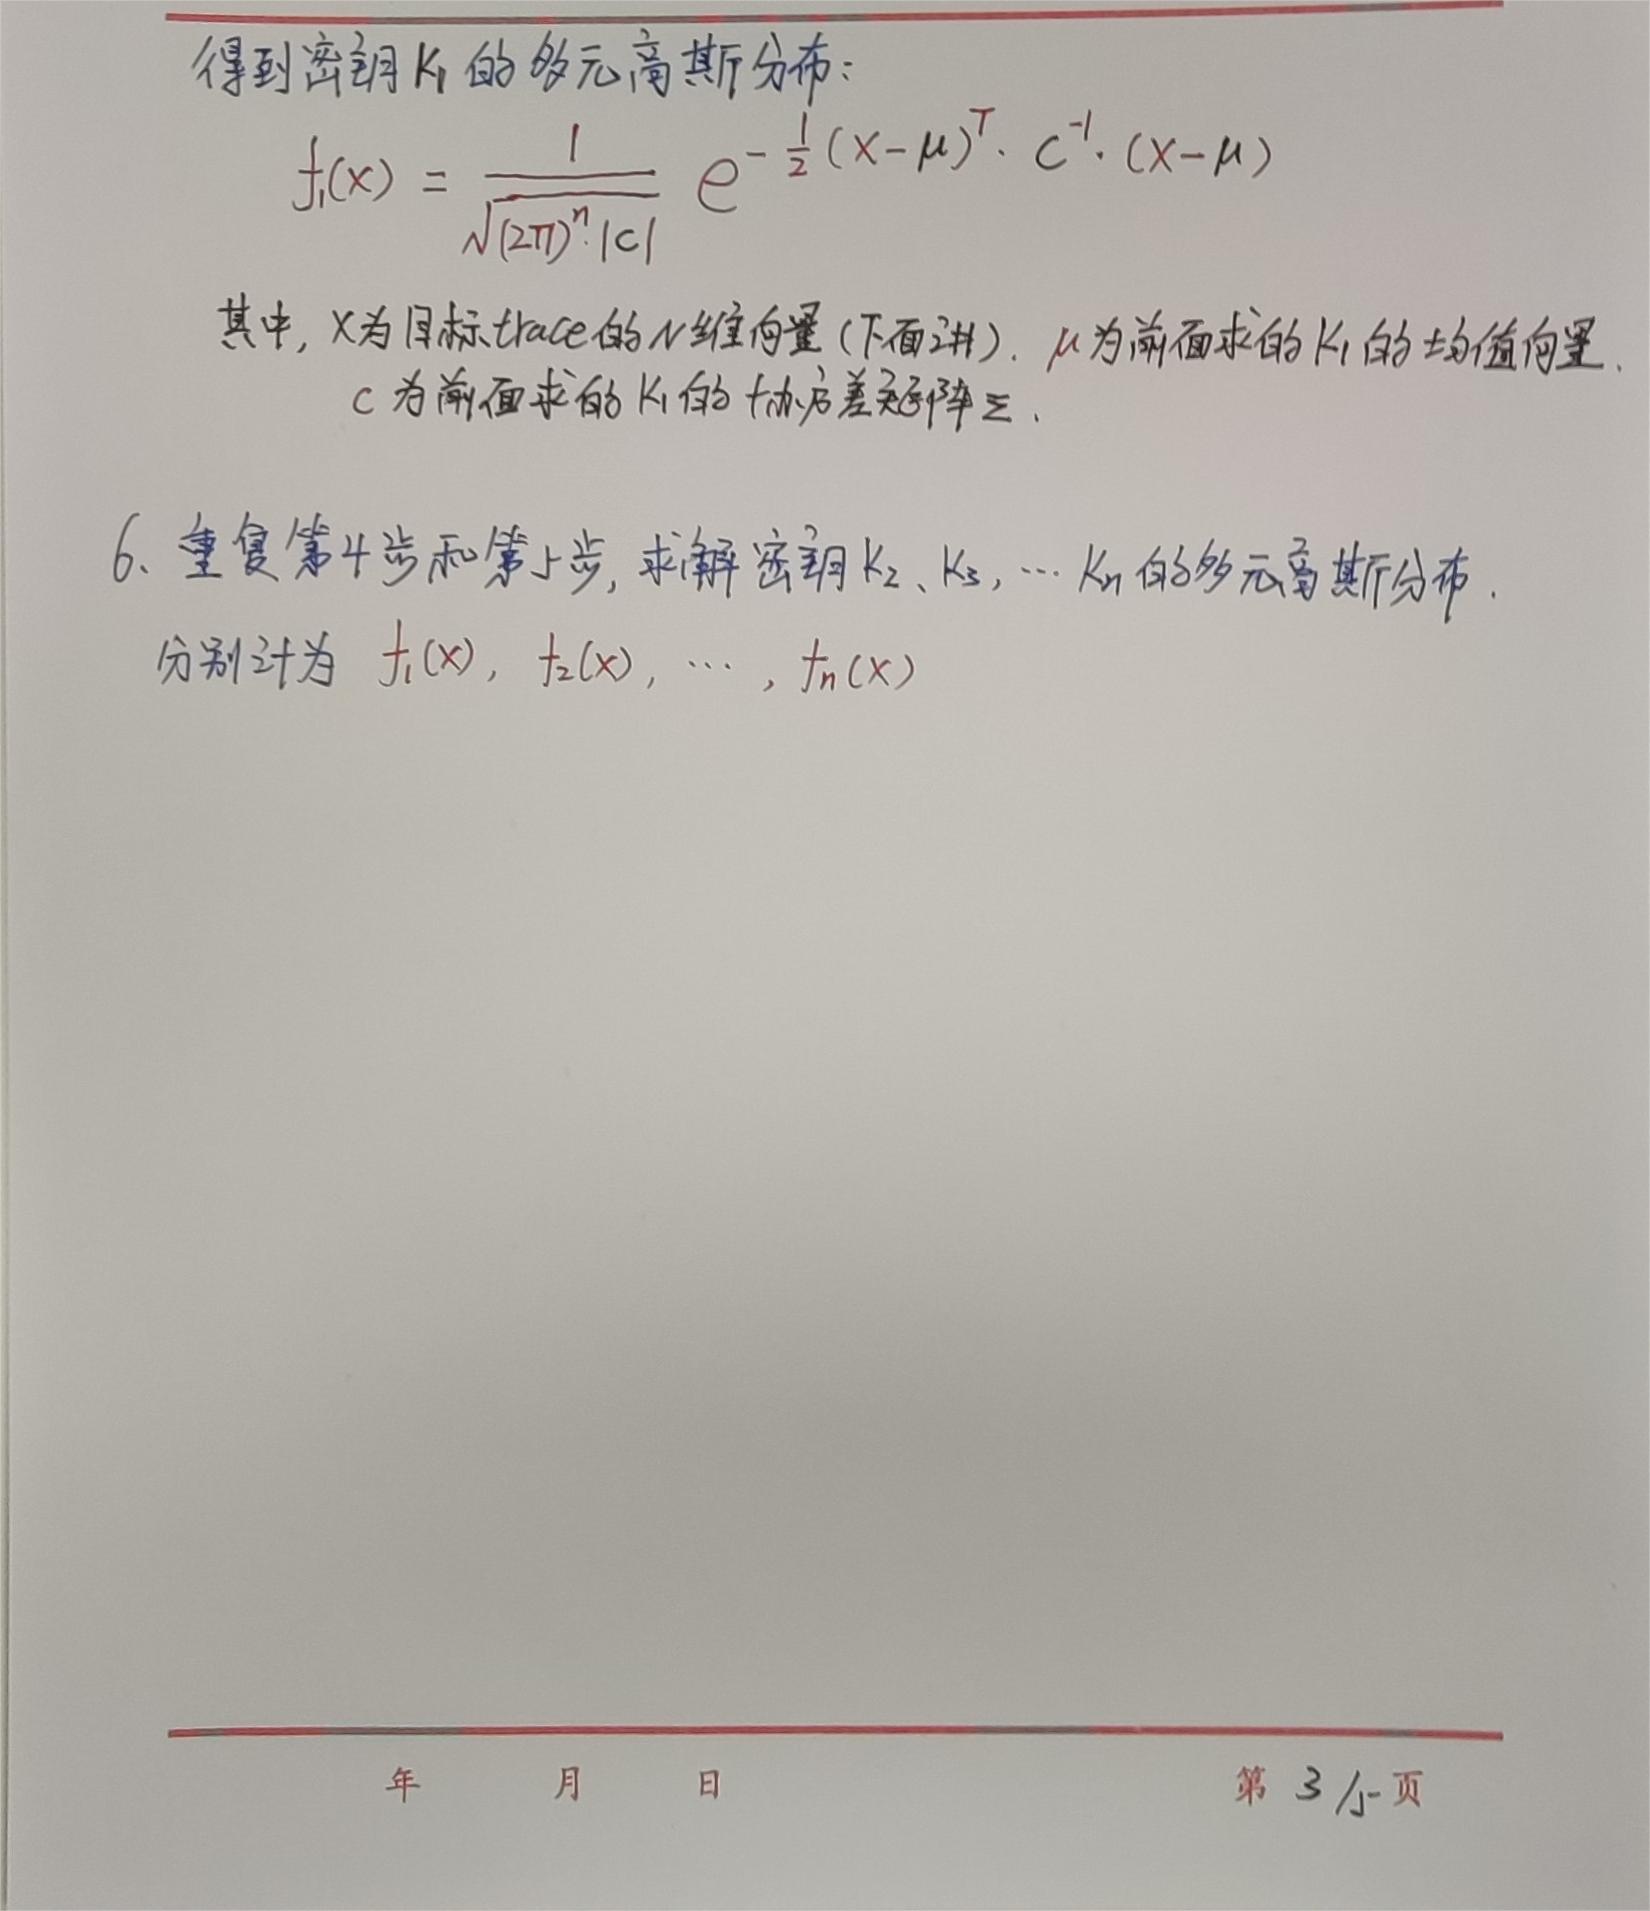 得到密钥K₁的多元高斯分布:
f₁(x) = 1/√((2π)ⁿ·|C|) e^(-1/2 (x-μ)ᵀ · C⁻¹ · (x-μ))
其中, X为目标trace的N维向量(下面讲). μ为前面求的K₁的均值向量.
C为前面求的K₁的协方差矩阵Σ.
6、重复第4步和第5步, 求解密钥K₂、K₃, … Kn的多元高斯分布.
分别计为 f₁(x), f₂(x), …, fn(x)
年 月 日 第 3/5 页